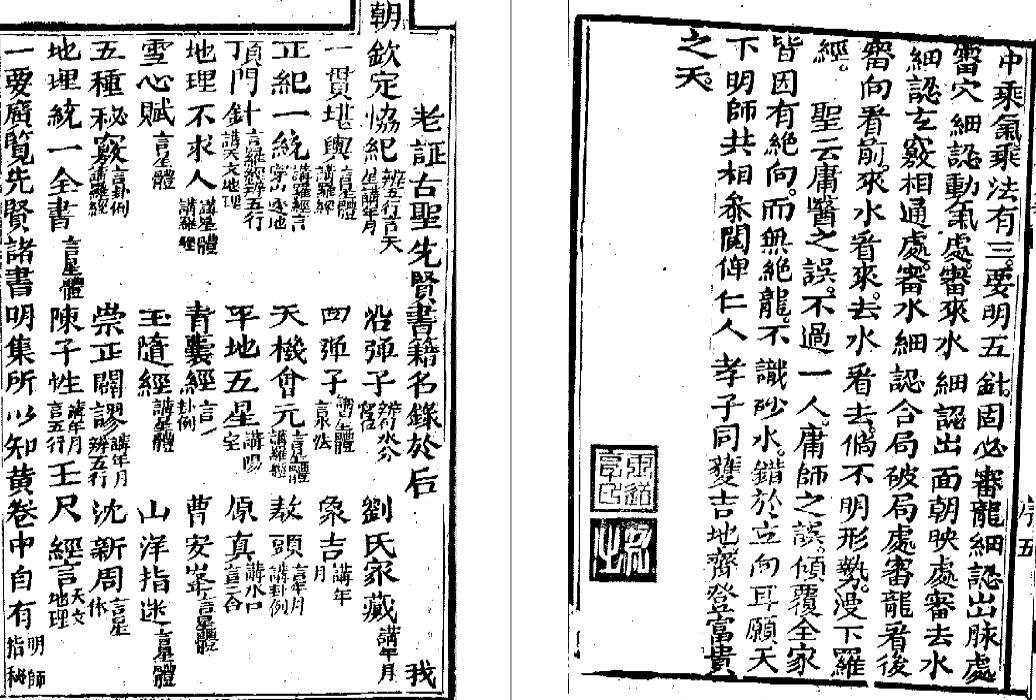 中乘氣乘法有三要明五針固必審龍細認出脉處
審穴細認動氣處審來水細認出面朝映處審去水
細認玄竅相通處審水細認合局破局處審龍看後
審向看前來水看來去水看去倘不明形勢漫下羅
經 聖云庸醫之誤不過一人庸師之誤傾覆全家
皆因有絶向而無絶龍不識砂水錯於立向耳願天
下明師共相叅閱俾仁人孝子同獲吉地齊登富貴
之天
序五
老証古聖先賢書籍名錄於后 我
朝
欽定恊紀辨五行言天星講年月 沿弾子辨水分宮 劉氏家藏講年月
一貫堪輿言星體講羅經 四弾子講星體言泉法 象吉講年月
正紀一統講羅經言穿山透地 天機會元言星體講羅經 敖頭言年月講卦例
頂門針言羅經辨五行講天文地理 平地五星講陽宅 原真講水口言三合
地理不求人講星體講羅經 青囊經言卦例 曹安峯言星體
雪心賦言星體 玉隨經講星體 山洋指迷言星體
五種秘竅言卦例講羅經 崇正闢謬講年月辨五行 沈新周言星体
地理統一全書言星體 陳子性講年月言五行 王尺經言天文地理
一要廣覧先賢諸書明集所以知黄卷中自有明師指秘